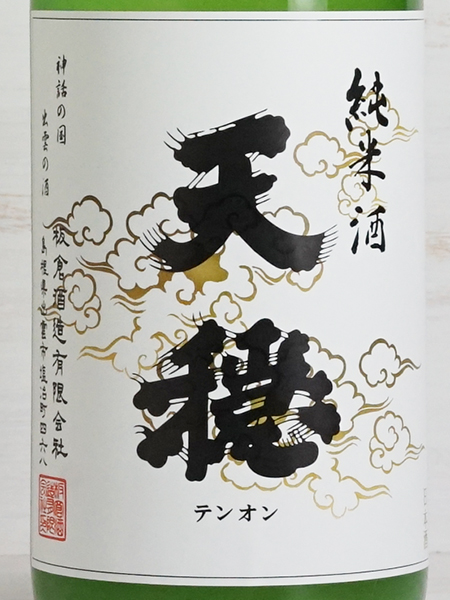 純米酒
天穏
テンオン
神話の国
出雲の酒
板倉酒造有限会社
島根県出雲市塩冶町四六八